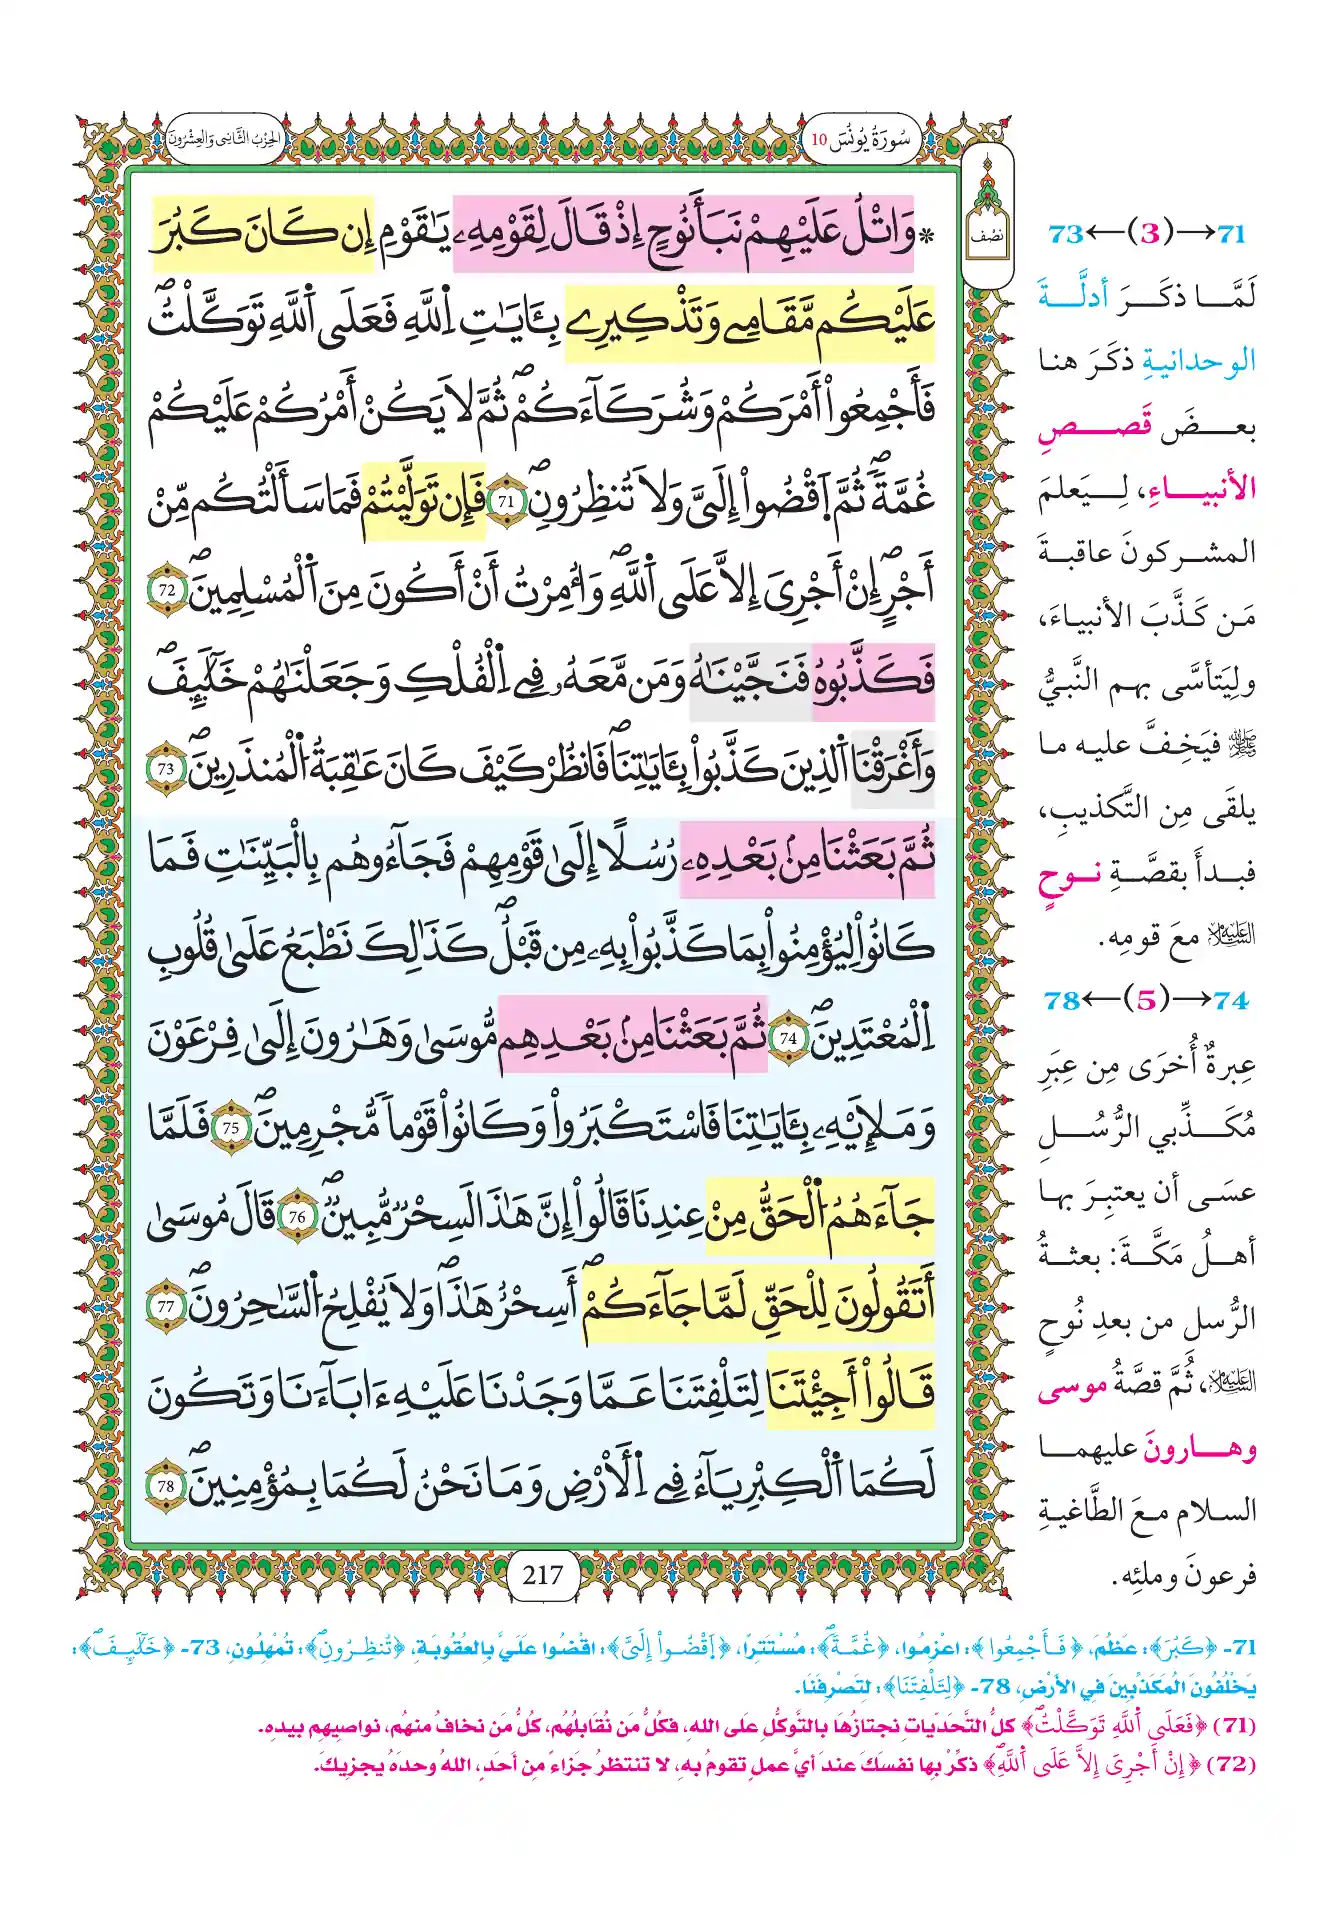 سُورَةُ يُونُسَ 10
الحِزْبُ الثَّانِي وَالعِشْرُونَ
نصْف
* وَاتْلُ عَلَيْهِمْ نَبَأَ نُوحٍ إِذْ قَالَ لِقَوْمِهِۦ يَٰقَوْمِ إِن كَانَ كَبُرَ
عَلَيْكُم مَّقَامِے وَتَذْكِيرِے بِـَٔايَٰتِ اِ۬للَّهِ فَعَلَى اَ۬للَّهِ تَوَكَّلْتُۖ
فَأَجْمِعُواْ أَمْرَكُمْ وَشُرَكَآءَكُمْۖ ثُمَّ لَا يَكُنْ أَمْرُكُمْ عَلَيْكُمْ
غُمَّةٗۖ ثُمَّ اَ۪قْضُواْ إِلَيَّ وَلَا تُنظِرُونِۖ 71 فَإِن تَوَلَّيْتُمْ فَمَا سَأَلْتُكُم مِّنْ
أَجْرٍۖ إِنْ أَجْرِىَ إِلَّا عَلَى اَ۬للَّهِۖ وَأُمِرْتُ أَنْ أَكُونَ مِنَ اَ۬لْمُسْلِمِينَۖ 72
فَكَذَّبُوهُ فَنَجَّيْنَٰهُ وَمَن مَّعَهُۥ فِے اِ۬لْفُلْكِ وَجَعَلْنَٰهُمْ خَلَٰٓئِفَۖ
وَأَغْرَقْنَا اَ۬لذِينَ كَذَّبُواْ بِـَٔايَٰتِنَاۖ فَانظُرْ كَيْفَ كَانَ عَٰقِبَةُ اُ۬لْمُنذَرِينَۖ 73
ثُمَّ بَعَثْنَا مِنۢ بَعْدِهِۦ رُسُلًا إِلَىٰ قَوْمِهِمْ فَجَآءُوهُم بِالْبَيِّنَٰتِ فَمَا
كَانُواْ لِيُؤْمِنُواْ بِمَا كَذَّبُواْ بِهِۦ مِن قَبْلُۖ كَذَٰلِكَ نَطْبَعُ عَلَىٰ قُلُوبِ
اِ۬لْمُعْتَدِينَۖ 74 ثُمَّ بَعَثْنَا مِنۢ بَعْدِهِم مُّوسَىٰ وَهَٰرُونَ إِلَىٰ فِرْعَوْنَ
وَمَلَإِيْهِۦ بِـَٔايَٰتِنَا فَاسْتَكْبَرُواْ وَكَانُواْ قَوْماٗ مُّجْرِمِينَۖ 75 فَلَمَّا
جَآءَهُمُ اُ۬لْحَقُّ مِنْ عِندِنَا قَالُواْ إِنَّ هَٰذَا لَسِحْرٞ مُّبِينٞۖ 76 قَالَ مُوسَىٰ
أَتَقُولُونَ لِلْحَقِّ لَمَّا جَآءَكُمْۖ أَسِحْرٌ هَٰذَاۖ وَلَا يُفْلِحُ اُ۬لسَّٰحِرُونَۖ 77
قَالُواْ أَجِئْتَنَا لِتَلْفِتَنَا عَمَّا وَجَدْنَا عَلَيْهِ ءَابَآءَنَا وَتَكُونَ
لَكُمَا اَ۬لْكِبْرِيَآءُ فِے اِ۬لْأَرْضِ وَمَا نَحْنُ لَكُمَا بِمُؤْمِنِينَۖ 78
217
71→(3)←73
لَمَّا ذكَرَ أدلَّةَ
الوحدانيةِ ذكَرَ هنا
بعضَ قَصصِ
الأنبياءِ، لِيَعلمَ
المشركونَ عاقبةَ
مَن كَذَّبَ الأنبياءَ،
ولِيَتأسَّى بهم النَّبيُّ
ﷺ فيَخِفَّ عليه ما
يلقَى مِن التَّكذيبِ،
فبدأَ بقصَّةِ نوحٍ
عليه السلام معَ قومِه.
74→(5)←78
عِبرةٌ أُخرَى مِن عِبَرِ
مُكَذِّبي الرُّسُلِ
عسَى أن يعتبِرَ بها
أهلُ مَكَّةَ: بعثةُ
الرُّسلِ من بعدِ نُوحٍ
عليه السلام، ثُمَّ قصَّةُ موسى
وهارونَ عليهما
السلام معَ الطَّاغيةِ
فرعونَ وملئِه.
71- ﴿كَبُرَ﴾: عَظُمَ، ﴿فَأَجْمِعُواْ﴾: اعْزِمُوا، ﴿غُمَّةٗۖ﴾: مُسْتَتِرًا، ﴿اَ۪قْضُواْ إِلَيَّ﴾: اقْضُوا عَلَيَّ بِالعُقُوبَةِ، ﴿تُنظِرُونِۖ﴾: تُمْهِلُونِ، 73- ﴿خَلَٰٓئِفَۖ﴾:
يَخْلُفُونَ المُكَذِّبِينَ فِي الأَرْضِ، 78- ﴿لِتَلْفِتَنَا﴾: لِتَصْرِفَنَا.
(71) ﴿فَعَلَى اَ۬للَّهِ تَوَكَّلْتُۖ﴾ كلُّ التَّحَدِّيات نجتازُهَا بالتَّوكُّلِ على الله، فكُلُّ مَن نُقَابلُهُم، كُلُّ مَن نخافُ منهُم، نواصِيهِم بيدِه.
(72) ﴿إِنْ أَجْرِىَ إِلَّا عَلَى اَ۬للَّهِۖ﴾ ذكِّرْ بها نفسَكَ عندَ أيِّ عملٍ تقومُ بهِ، لا تنتظرُ جَزاءً مِن أحَدٍ، اللهُ وحدَهُ يجزِيكَ.